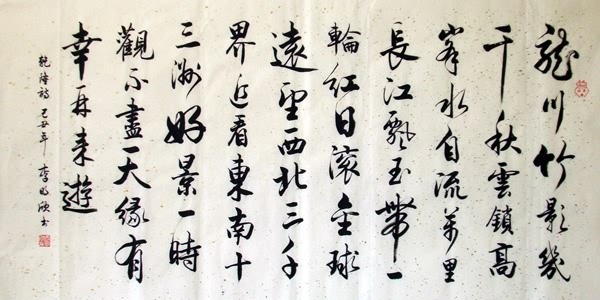 龍川竹影幾
千秋雲鎖高
峯水自流萬里
長江飄玉帶一
輪紅日滾金球
遠望西北三千
界近看東南十
三洲好景一時
觀不盡天緣有
幸再来遊
乾隆詩 己丑年 李明欣书